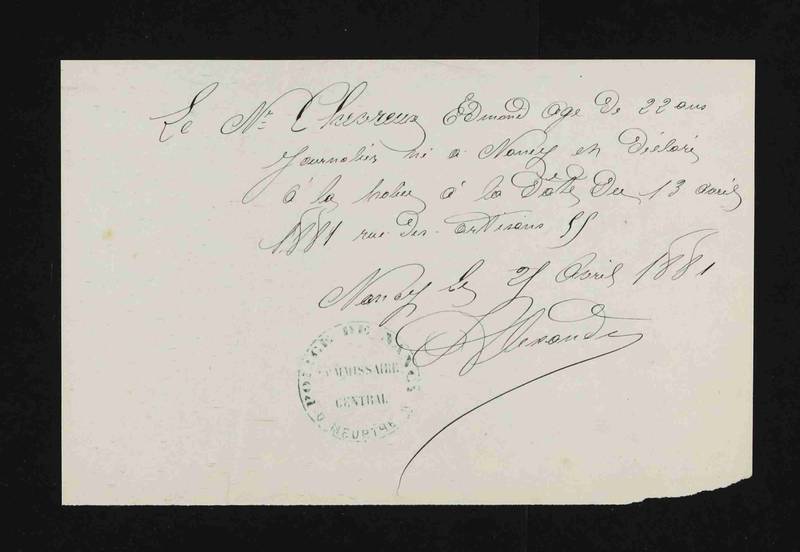 Le Nr Chevreux Edmond age de 22 ans
Journalier né a Nancy est déclaré
à la police à la date du 13 avril
1881 rue des artisans 55
Nancy le 25 Avril 1881
Alexandre
POLICE DE NANCY
COMMISSAIRE
CENTRAL
MEURTHE